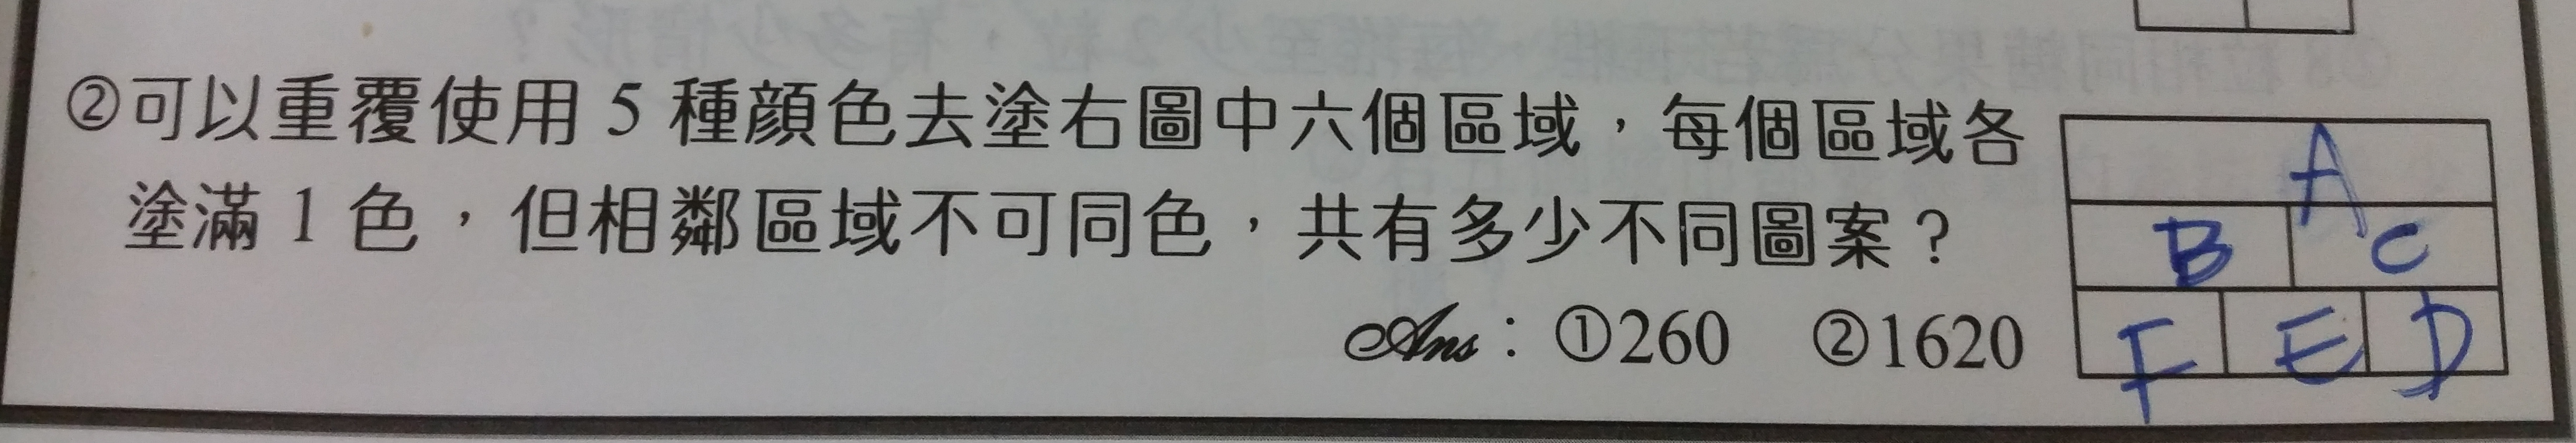 ②可以重覆使用 5 種顏色去塗右圖中六個區域，每個區域各
塗滿 1 色，但相鄰區域不可同色，共有多少不同圖案？
Ans：①260 ②1620
A
B C
F E D